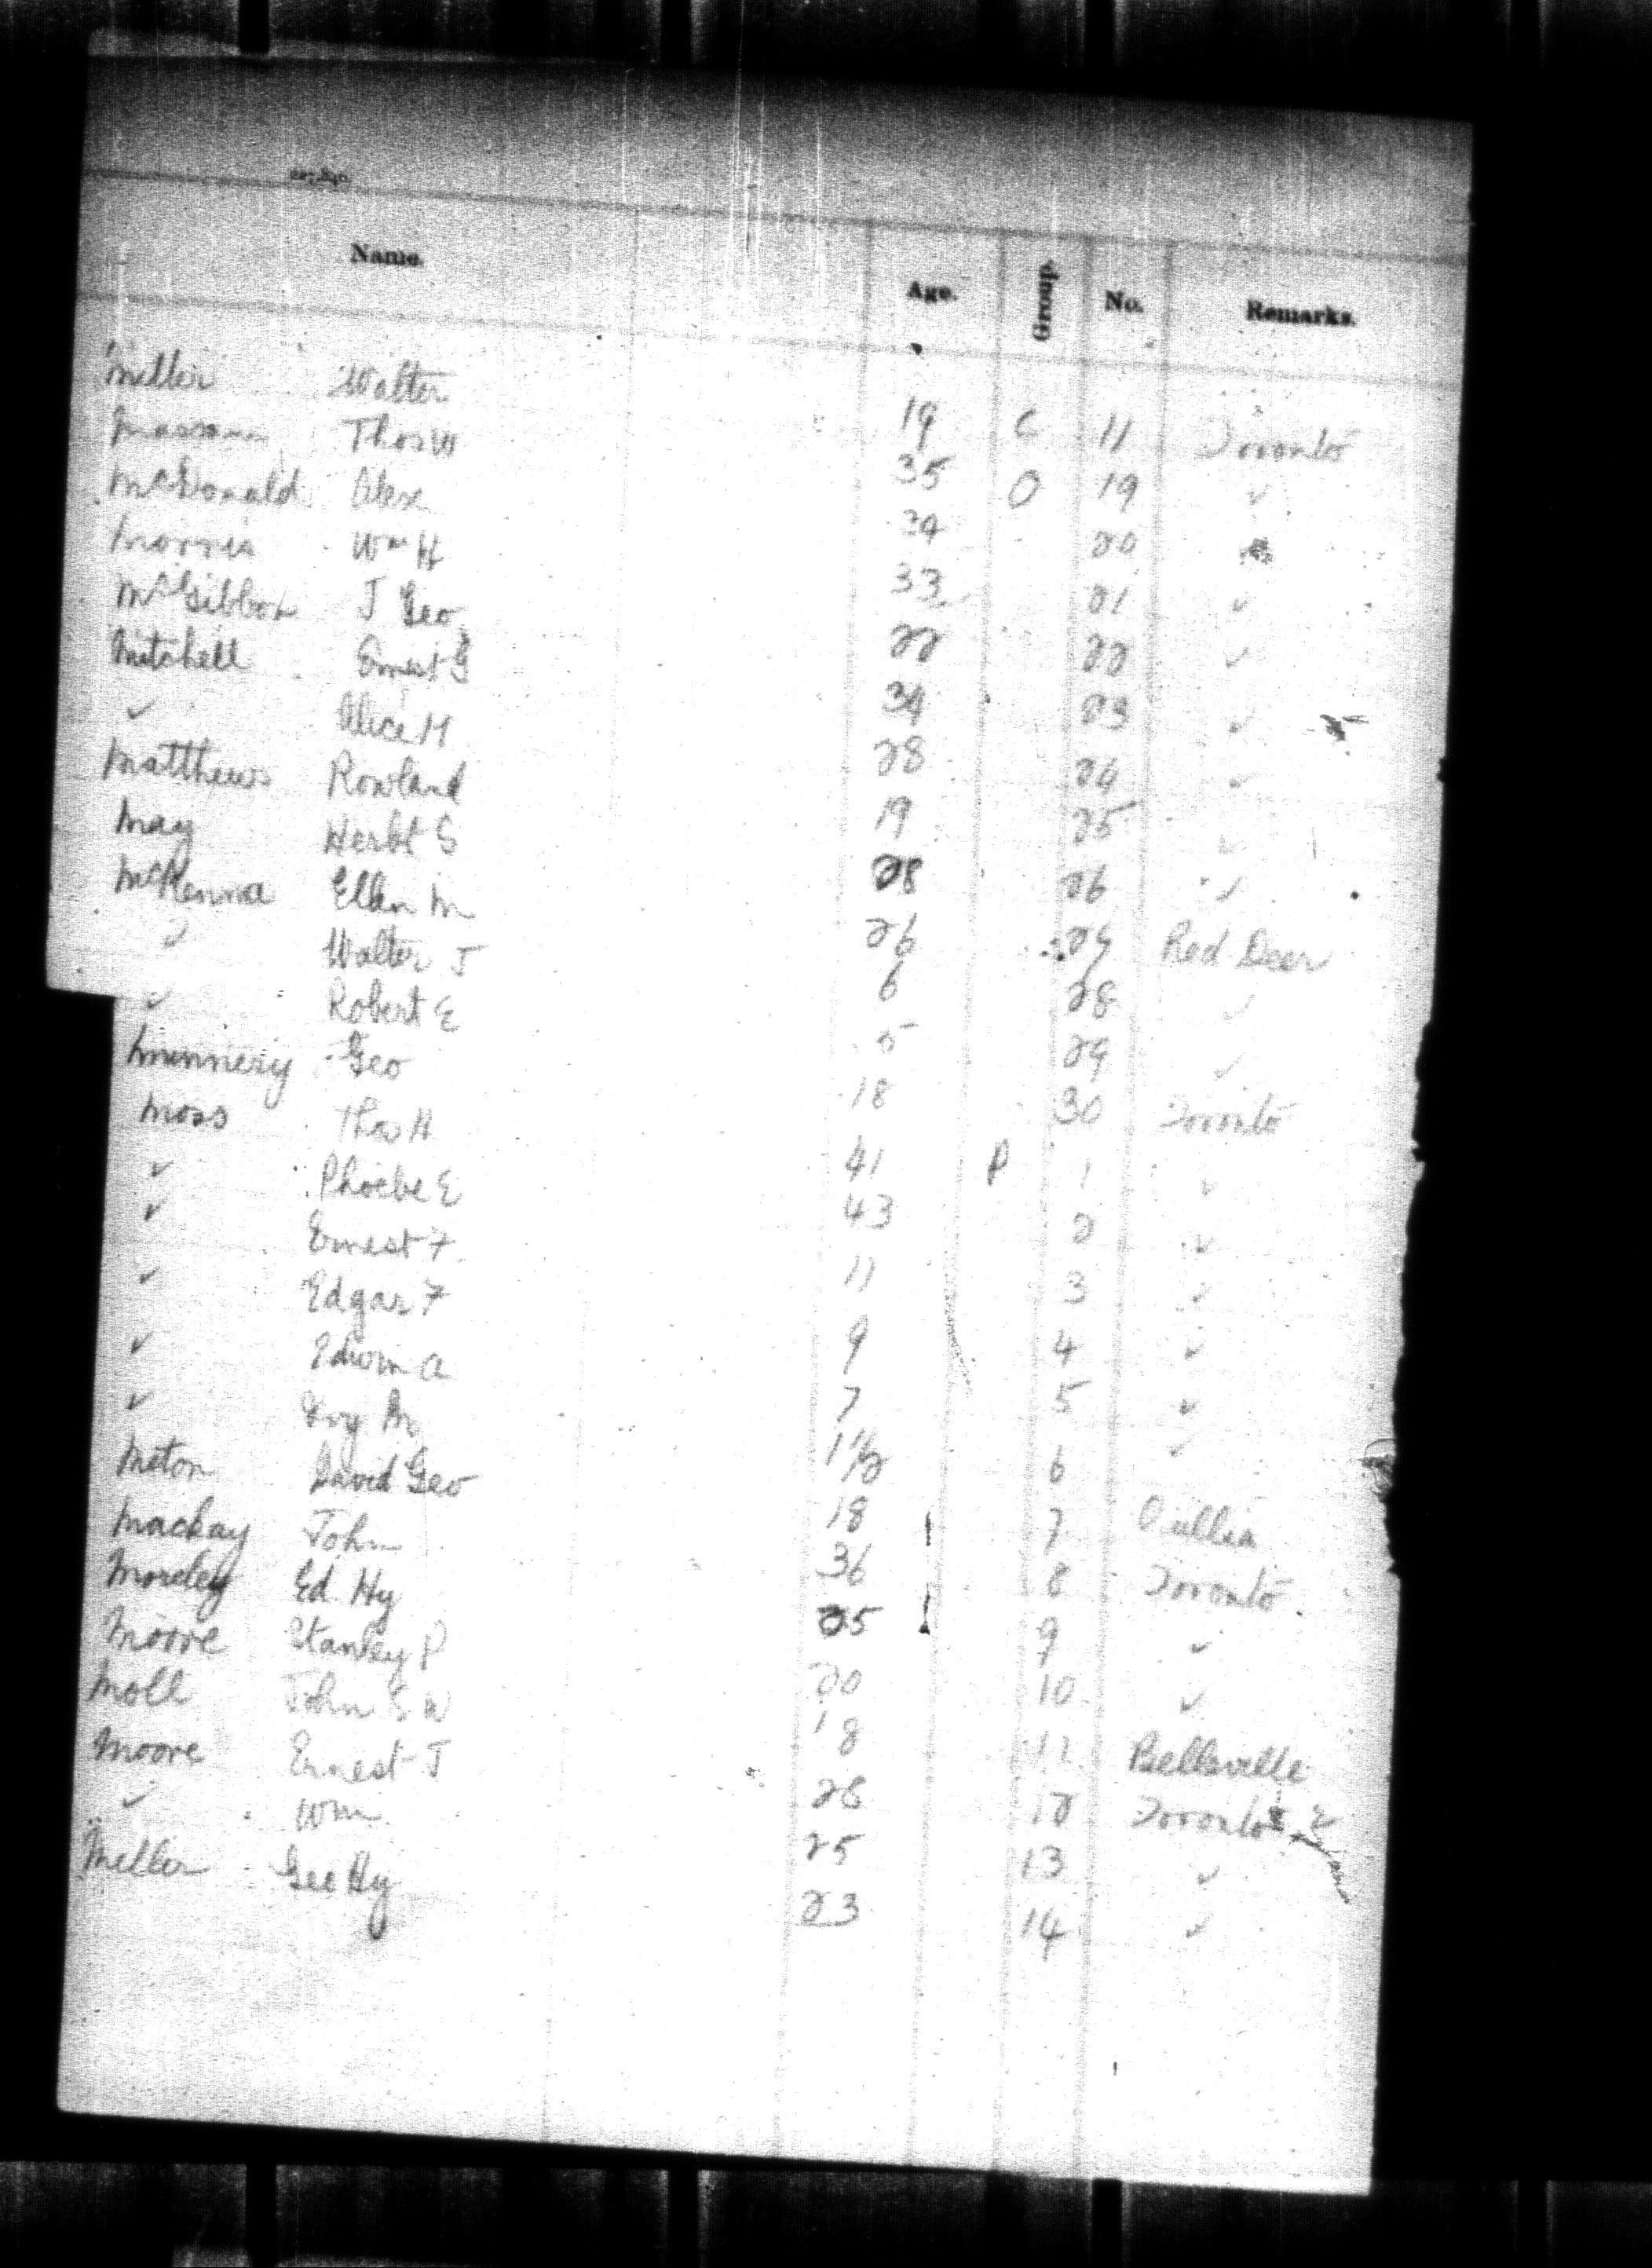 227,840.
Name. Age. Group. No. Remarks.
Miller Walter 19 C 11 Toronto
Masson Thos W 35 O 19 ✓
McDonald Alex 24 20
Morris Wm H 33 21 ✓
McGibbon J Geo 22 22 ✓
Mitchell Ernest G 34 23 ✓
✓ Alice M 28 24 ✓
Matthews Rowland 19 25 ✓
May Herbt S 28 26 ✓
McKenna Ellen M 26 27 Red Deer
✓ Walter J 6 28 ✓
✓ Robert E 5 29 ✓
Munnery Geo 18 30 Toronto
Moss Thos H 41 P 1 ✓
✓ Phoebe E 43 2 ✓
✓ Ernest F. 11 3 ✓
✓ Edgar F 9 4 ✓
✓ Edwin A 7 5 ✓
✓ Ivy M 1 1/2 6 ✓
Miton David Geo 18 7 Orillia
Mackay John 36 8 Toronto
Morley Ed. Hy 25 9 ✓
Moore Stanley P 20 10 ✓
Moll John S W 18 11 Belleville
Moore Ernest J 28 12 Toronto E
✓ Wm. 25 13 ✓
Miller Geo Hy 23 14 ✓